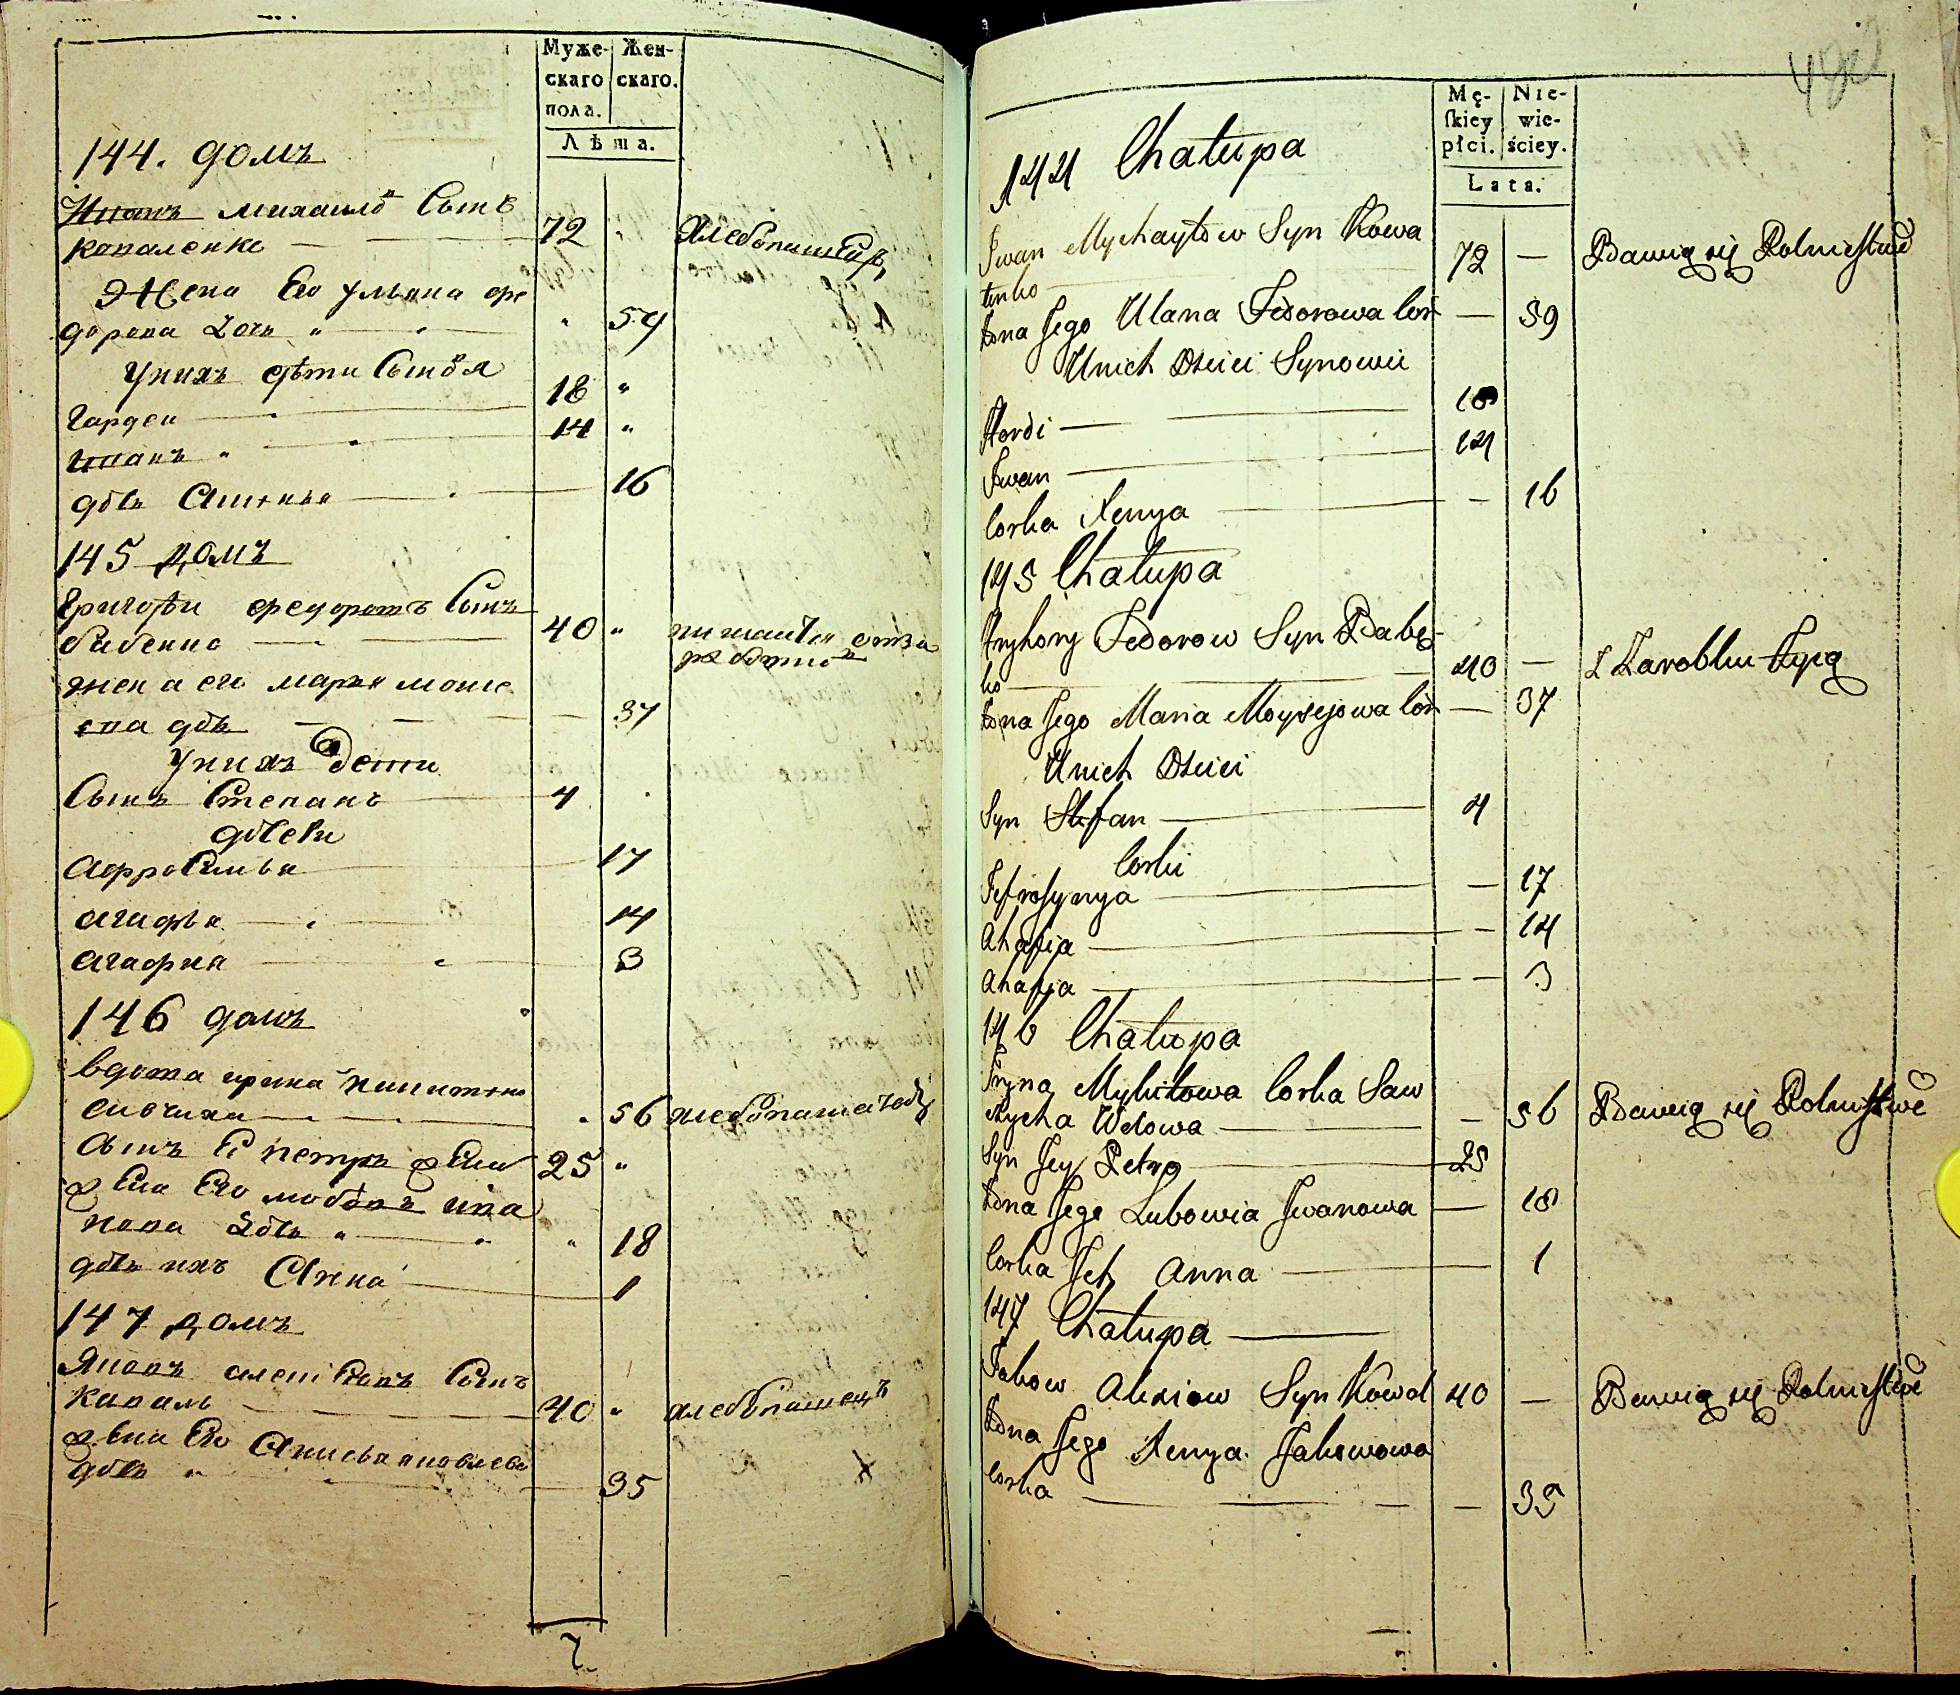 Муже-
скаго
пола.
Жен-
скаго.
Лѣта.
144. домъ
Иванъ михаиловъ Сынъ
коваленко 72 " хлебопашецъ
Жена Его ульяна фе
дорова Дочь " " 54
Унихъ дѣти Сыновя
Гордеи 18 "
Иванъ " 14 "
дочь 16
145 домъ
Григореи федоровъ Сынъ
бабенко 40 "
жена его марья моисе
ева дочь 37
Унихъ дети
Сынъ Степанъ 4
дочери
Афросинья 17
агафья 14
агафия 3
146 домъ
вдова ирина никитина
савчиха 56
Сынъ Ея петръ 25 "
Его любовь ива
нова дочь " " 18
дочь ихъ Анна 1
147 домъ
Яковъ алексеевъ Сынъ
коваль 40 " хлебопашецъ
Его яковлева
дочь " 35
7
Mę-
ſkiey
płci.
Nie-
wie-
ściey.
Lata.
144 Chałupa
Iwan Mychayłow Syn Kowa
lenko 72 — Bawią się Rolnictwē
Żona Jego Ulana Fedorowa Cór — 59
Unich Dzieci Synowie
Hordi — 18
Iwan — 14
Corka Xenya — 16
145 Chałupa
Hryhory Fedorow Syn Babę-
ko — 40 — Z Zarobku Żyią
Żona Jego Maria Moysejowa Cór — 37
Unich Dzieci
Syn Stefan — 4
Corki
Jefrosynya — 17
Ahafia — 14
Ahafia — 3
146 Chałupa
Iryna Mykitowa Corka Saw
czycha Wdowa — 56 Bawią się Rolnictwē
Syn Jey Petro — 25
Żona Jego Lubowia Iwanowa — 18
Corka Ich Anna — 1
147 Chałupa —
Jakow Alexiow Syn Kowal 40 — Bawią się Rolnictwē
Żona Jego Xenya Jakowowa
Corka — 35